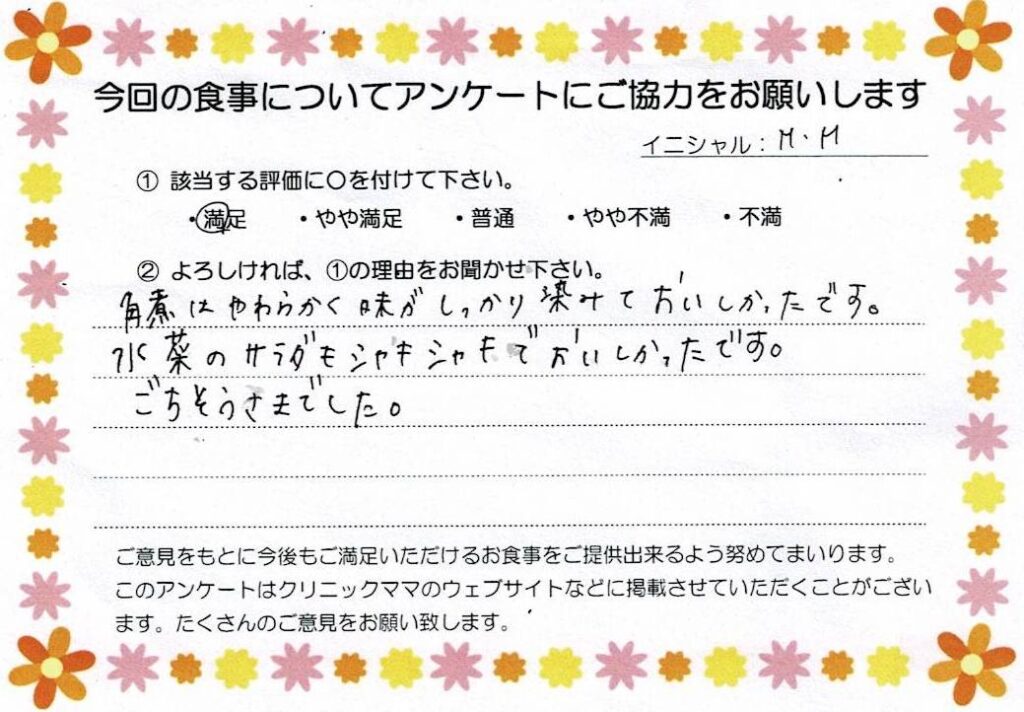 今回の食事についてアンケートにご協力をお願いします
イニシャル：M・M
① 該当する評価に○を付けて下さい。
・満足 ・やや満足 ・普通 ・やや不満 ・不満
② よろしければ、①の理由をお聞かせ下さい。
角煮はやわらかく味がしっかり染みておいしかったです。
水菜のサラダもシャキシャキでおいしかったです。
ごちそうさまでした。
ご意見をもとに今後もご満足いただけるお食事をご提供出来るよう努めてまいります。
このアンケートはクリニックママのウェブサイトなどに掲載させていただくことがござい
ます。たくさんのご意見をお願い致します。